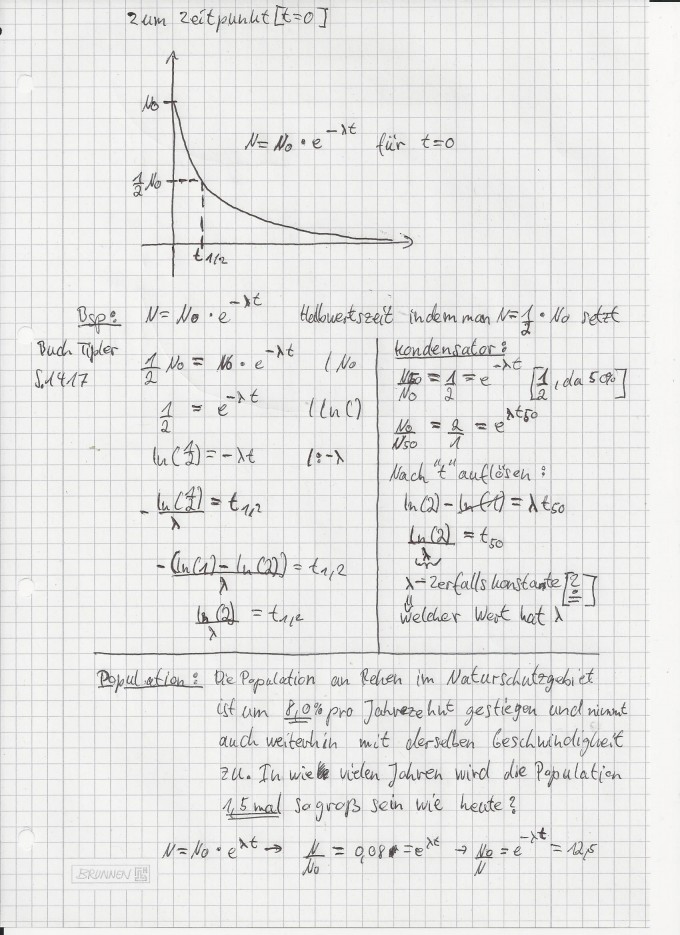 zum Zeitpunkt [t=0]
N₀
N = N₀ · e^{-λt} für t=0
1/2 N₀
t 1/2
Bsp: N = N₀ · e^{-λt} Halbwertszeit indem man N = 1/2 · N₀ setzt
Buch Tipler
S. 1417
1/2 N₀ = N₀ · e^{-λt} | N₀
1/2 = e^{-λt} | ln()
ln(1/2) = -λt | : -λ
- ln(1/2)/λ = t 1/2
-(ln(1) - ln(2))/λ = t 1/2
ln(2)/λ = t 1/2
Kondensator:
N50/N₀ = 1/2 = e^{-λt} [1/2, da 50%]
N₀/N50 = 2/1 = e^{λt50}
Nach "t" auflösen:
ln(2) - ln(1) = λ t50
ln(2)/λ = t50
λ - Zerfallskonstante [?]
welcher Wert hat λ
Population: Die Population an Rehen im Naturschutzgebiet
ist um 8,0% pro Jahrzehnt gestiegen und nimmt
auch weiterhin mit derselben Geschwindigkeit
zu. In wie vielen Jahren wird die Population
1,5 mal so groß sein wie heute?
N = N₀ · e^{λt} → N/N₀ = 0,08 = e^{λt} → N₀/N = e^{-λt} = 12,5
BRUNNEN